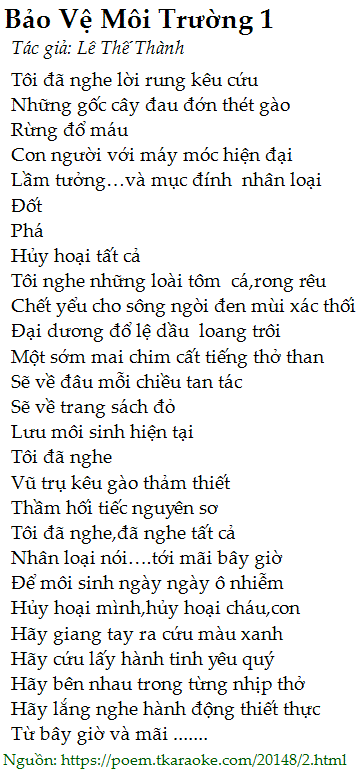 Bảo Vệ Môi Trường 1
Tác giả: Lê Thế Thành
Tôi đã nghe lời rung kêu cứu
Những gốc cây đau đớn thét gào
Rừng đổ máu
Con người với máy móc hiện đại
Lầm tưởng…và mục đính  nhân loại
Đốt
Phá
Hủy hoại tất cả
Tôi nghe những loài tôm  cá,rong rêu
Chết yểu cho sông ngòi đen mùi xác thối
Đại dương đổ lệ dầu  loang trôi
Một sớm mai chim cất tiếng thở than
Sẽ về đâu mỗi chiều tan tác
Sẽ về trang sách đỏ
Lưu môi sinh hiện tại
Tôi đã nghe
Vũ trụ kêu gào thảm thiết
Thầm hối tiếc nguyên sơ
Tôi đã nghe,đã nghe tất cả
Nhân loại nói….tới mãi bây giờ
Để môi sinh ngày ngày ô nhiễm
Hủy hoại mình,hủy hoại cháu,con
Hãy giang tay ra cứu màu xanh
Hãy cứu lấy hành tinh yêu quý
Hãy bên nhau trong từng nhịp thở
Hãy lắng nghe hành động thiết thực
Từ bây giờ và mãi .......
Nguồn: https://poem.tkaraoke.com/20148/2.html